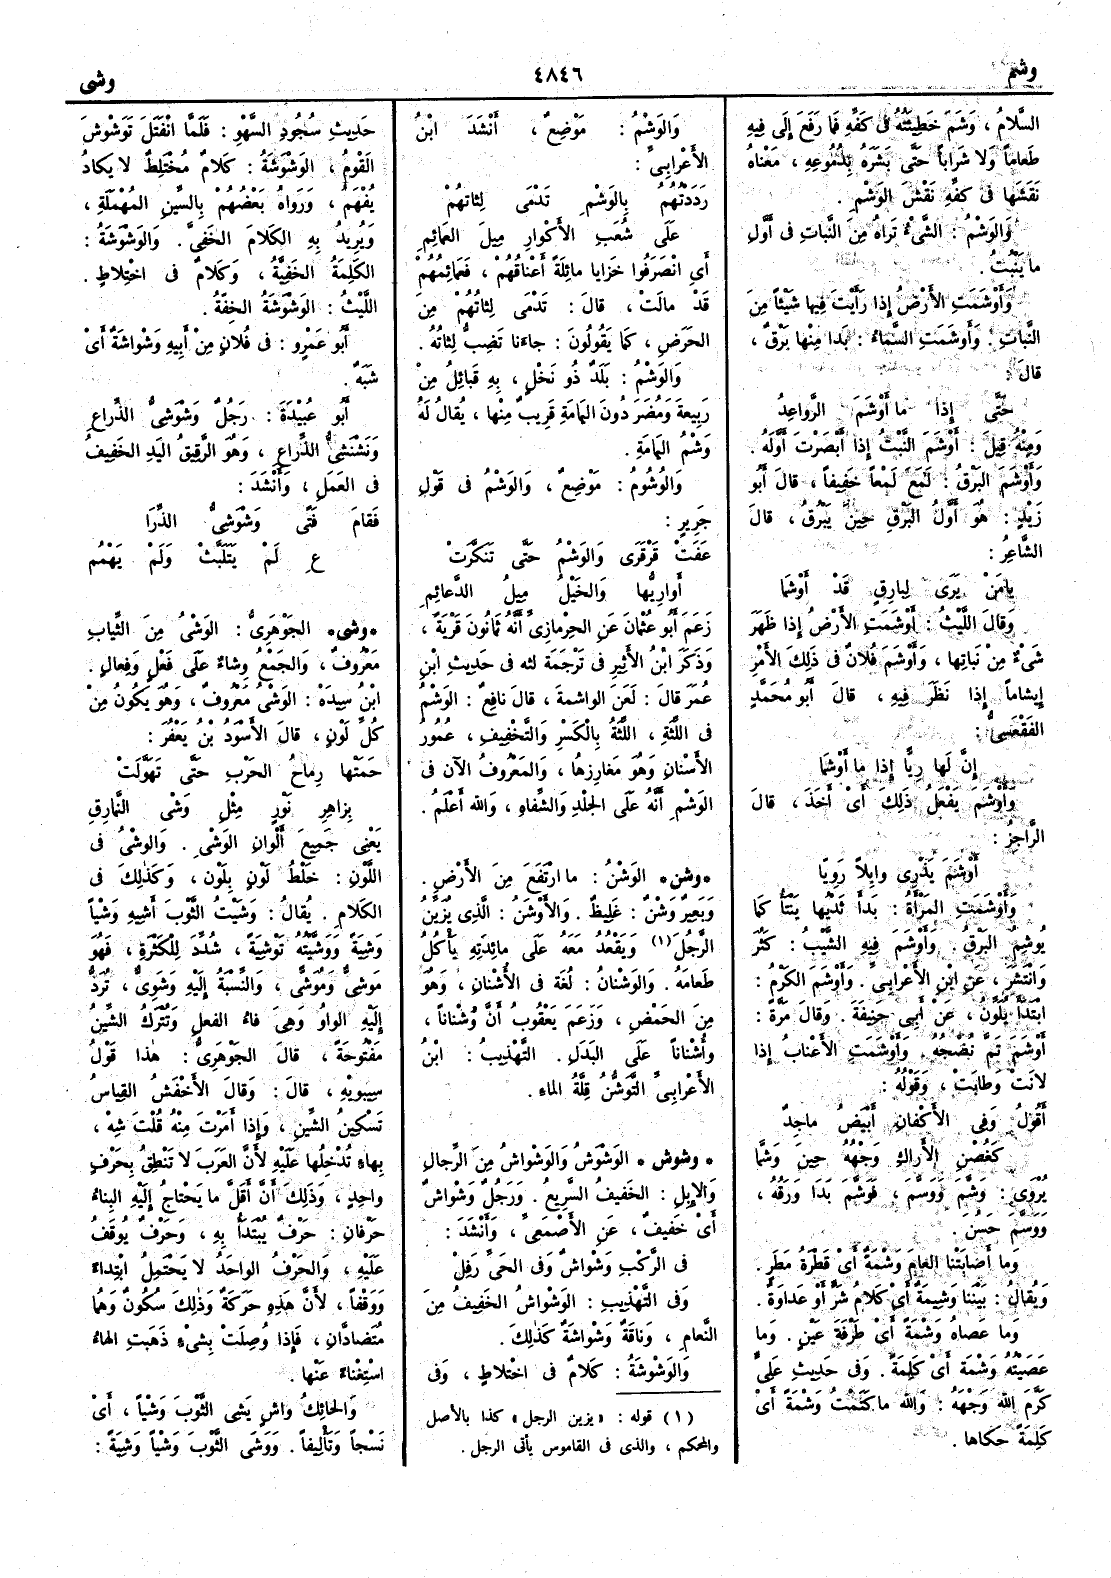 وشم
٤٨٤٦
وشى
السَّلامُ ، وَشَمَ خَطِيئَتَهُ فى كَفِّهِ فَما رَفَعَ إِلى فِيهِ
طَعاماً وَلا شَراباً حَتَّى بَشَرَهُ بِدُمُوعِهِ ، مَعْناهُ
نَقَشَها فى كَفِّهِ نَقْشَ الوَشْمِ .
وَالوَشْمُ : الشَّىْءُ تَراهُ مِنَ النَّباتِ فى أَوَّلِ
ما يَنْبُتُ .
وَأَوْشَمَتِ الأَرْضُ إِذا رَأَيْتَ فِيها شَيْئاً مِنَ
النَّباتِ . وَأَوْشَمَتِ السَّماءُ : بَدا مِنْها بَرْقٌ ،
قالَ :
حَتَّى إِذا ما أَوْشَمَ الرَّواعِدُ
وَمِنْهُ قِيلَ : أَوْشَمَ النَّبْتُ إِذا أَبْصَرْتَ أَوَّلَهُ .
وَأَوْشَمَ البَرْقُ : لَمَعَ لَمْعاً خَفِيفاً ، قالَ أَبُو
زَيْدٍ : هُوَ أَوَّلُ البَرْقِ حِينَ يَبْرُقُ ، قالَ
الشَّاعِرُ :
يا مَنْ يَرَى لِبارِقٍ قَدْ أَوْشَما
وَقالَ اللَّيْثُ : أَوْشَمَتِ الأَرْضُ إِذا ظَهَرَ
شَىْءٌ مِنْ نَباتِها ، وَأَوْشَمَ فُلانٌ فى ذٰلِكَ الأَمْرِ
إِيشاماً إِذا نَظَرَ فِيهِ ، قالَ أَبو مُحَمَّدٍ
الفَقْعَسِىُّ :
إِنَّ لَها رِيًّا إِذا ما أَوْشَما
وَأَوْشَمَ يَفْعَلُ ذٰلِكَ أَىْ أَخَذَ ، قالَ
الرَّاجِزُ :
أَوْشَمَ يَذْرِى وابِلاً رَوِيًّا
وَأَوْشَمَتِ المَرْأَةُ : بَدأَ ثَدْيُها يَنْتَأُ كَما
يُوشِمُ البَرْقُ . وَأَوْشَمَ فِيهِ الشَّيْبُ : كَثُرَ
وَانْتَشَرَ ، عَنِ ابْنِ الأَعْرابِىِّ . وَأَوْشَمَ الكَرْمُ :
ابْتَدَأَ يُلَوِّنُ ، عَنْ أَبِى حَنِيفَةَ . وَقالَ مَرَّةً :
أَوْشَمَ تَمَّ نُضْجُهُ . وَأَوْشَمَتِ الأَعْنابُ إِذا
لانَتْ وَطابَتْ ، وَقَوْلُهُ :
أَقُولُ وَفِى الأَكْفانِ أَبْيَضُ ماجِدٌ
كَغُصْنِ الأَراكِ وَجْهُهُ حِينَ وَشَّما
يُرْوَى : وَشَّمَ وَوَسَّمَ ، فَوَشَّمَ بَدا وَرَقُهُ ،
وَوَسَّمَ حَسُنَ .
وَما أَصابَتْنا العامَ وَشْمَةٌ أَىْ قَطْرَةُ مَطَرٍ .
وَيُقالُ : بَيْنَنا وَشِيمَةٌ أَىْ كَلامُ شَرٍّ أَوْ عَداوَةٌ .
وَما عَصاهُ وَشْمَةً أَىْ طَرْفَةَ عَيْنٍ . وَما
عَصَيْتُهُ وَشْمَةً أَىْ كَلِمَةً . وَفى حَدِيثِ عَلِىٍّ
كَرَّمَ اللهُ وَجْهَهُ : وَاللهِ ما كَتَمْتُ وَشْمَةً أَىْ
كَلِمَةً حَكاها .
وَالوَشْمُ : مَوْضِعٌ ، أَنْشَدَ ابْنُ
الأَعْرابِىِّ :
رَدَدْتُهُمُ بِالوَشْمِ تَدْمَى لِثاتُهُمْ
عَلَى شُعَبِ الأَكْوارِ مِيلَ العَمائِمِ
أَىِ انْصَرَفُوا خَزايا مائِلَةً أَعْناقُهُمْ ، فَعَمائِمُهُمْ
قَدْ مالَتْ ، قالَ : تَدْمَى لِثاتُهُمْ مِنَ
الحَرَضِ ، كَما يَقُولُونَ : جاءَنا تَضِبُّ لِثاتُهُ .
وَالوَشْمُ : بَلَدٌ ذُو نَخْلٍ ، بِهِ قَبائِلُ مِنْ
رَبِيعَةَ وَمُضَرَ دُونَ اليَمامَةِ قَرِيبٌ مِنْها ، يُقالُ لَهُ
وَشْمُ اليَمامَةِ .
وَالوُشُومُ : مَوْضِعٌ ، وَالوَشْمُ فى قَوْلِ
جَرِيرٍ :
عَفَتْ قَرْقَرَى وَالوَشْمُ حَتَّى تَنَكَّرَتْ
أَوارِيُّها وَالخَيْلُ مِيلُ الدَّعائِمِ
زَعَمَ أَبو عُثْمانَ عَنِ الحِرمازِىِّ أَنَّهُ ثَمانُونَ قَرْيَةً ،
وَذَكَرَ ابْنُ الأَثِيرِ فى تَرْجَمَةِ لثه فى حَدِيثِ ابْنِ
عُمَرَ قالَ : لَعَنَ الواشِمَةَ ، قالَ نافِعٌ : الوَشْمُ
فى اللِّثَةِ ، اللِّثَةُ بِالكَسْرِ وَالتَّخْفِيفِ ، عُمُورُ
الأَسْنانِ وَهُوَ مَغارِزُها ، وَالمَعْرُوفُ الآنَ فى
الوَشْمِ أَنَّهُ عَلَى الجِلْدِ وَالشِّفاهِ ، وَاللهُ أَعْلَمُ .
* وشن * الوَشْنُ : ما ارْتَفَعَ مِنَ الأَرْضِ .
وَبَعِيرٌ وَشْنٌ : غَلِيظٌ . وَالأَوْشَنُ : الَّذِى يُزَيِّنُ
الرَّجُلَ (١) وَيَقْعُدُ مَعَهُ عَلَى مائِدَتِهِ يَأْكُلُ
طَعامَهُ . وَالوَشْنانُ : لُغَةٌ فى الأُشْنانِ ، وَهُوَ
مِنَ الحَمْضِ ، وَزَعَمَ يَعْقُوبُ أَنَّ وُشْناناً ،
وأُشْناناً عَلَى البَدَلِ . التَّهْذِيبُ : ابْنُ
الأَعْرابِىِّ التَّوَشُّنُ قِلَّةُ الماءِ .
* وشوش * الوَشْوَشُ وَالوَشْواشُ مِنَ الرِّجالِ
وَالإِبِلِ : الخَفِيفُ السَّرِيعُ . وَرَجُلٌ وَشْواشٌ
أَىْ خَفِيفٌ ، عَنِ الأَصْمَعِىِّ ، وَأَنْشَدَ :
فى الرَّكْبِ وَشْواشٌ وَفى الحَىِّ رَفِلْ
وَفى التَّهْذِيبِ : الوَشْواشُ الخَفِيفُ مِنَ
النَّعامِ ، وَناقَةٌ وَشْواشَةٌ كَذٰلِكَ .
وَالوَشْوَشَةُ : كَلامٌ فى اخْتِلاطٍ ، وَفى
(١) قوله : « يزين الرجل » كذا بالأصل
والمحكم ، والذى فى القاموس يأتى الرجل .
حَدِيثِ سُجُودِ السَّهْوِ : فَلَمَّا انْفَتَلَ تَوَشْوَشَ
القَوْمُ ، الوَشْوَشَةُ : كَلامٌ مُخْتَلِطٌ لا يَكادُ
يُفْهَمُ ، وَرَواهُ بَعْضُهُمْ بِالسِّينِ المُهْمَلَةِ ،
وَيُرِيدُ بِهِ الكَلامَ الخَفِىَّ . وَالوَشْوَشَةُ :
الكَلِمَةُ الخَفِيَّةُ ، وَكَلامٌ فى اخْتِلاطٍ .
اللَّيْثُ : الوَشْوَشَةُ الخِفَّةُ .
أَبُو عَمْرٍو : فى فُلانٍ مِنْ أَبِيهِ وَشْواشَةٌ أَىْ
شَبَهٌ .
أَبُو عُبَيْدَةَ : رَجُلٌ وَشْوَشِىُّ الذِّراعِ
وَنَشْنَشِىُّ الذِّراعِ ، وَهُوَ الرَّقِيقُ اليَدِ الخَفِيفُ
فى العَمَلِ ، وَأَنْشَدَ :
فَقامَ فَتًى وَشْوَشِىُّ الذِّرَا
عِ لَمْ يَتَلَبَّثْ وَلَمْ يَهْمُمِ
* وشى * الجَوْهَرِىُّ : الوَشْىُ مِنَ الثِّيابِ
مَعْرُوفٌ ، وَالجَمْعُ وِشاءٌ عَلَى فَعْلٍ وَفِعالٍ .
ابْنُ سِيدَهْ : الوَشْىُ مَعْرُوفٌ ، وَهُوَ يَكُونُ مِنْ
كُلِّ لَوْنٍ ، قالَ الأَسْوَدُ بْنُ يَعْفُرَ :
حَمَتْها رِماحُ الحَرْبِ حَتَّى تَهَوَّلَتْ
بِزاهِرِ نَوْرٍ مِثْلِ وَشْىِ النَّمارِقِ
يَعْنِى جَمِيعَ أَلْوانِ الوَشْىِ . وَالوشْىُ فى
اللَّوْنِ : خَلْطُ لَوْنٍ بِلَوْنٍ ، وَكَذٰلِكَ فى
الكَلامِ . يُقالُ : وَشَيْتُ الثَّوْبَ أَشِيهِ وَشْياً
وَشِيَةً وَوَشَّيْتُه تَوْشِيَةً ، شُدِّدَ لِلْكَثْرَةِ ، فَهُوَ
مَوشِىٌّ وَمُوَشًّى ، وَالنِّسْبَةُ إِلَيْهِ وِشَوِىٌّ ، تُرَدُّ
إِلَيْهِ الواوُ وَهِىَ فاءُ الفعلِ وَتُتْرَكُ الشِّينُ
مَفْتُوحَةً ، قالَ الجَوْهَرِىُّ : هٰذا قَوْلُ
سِيبَوَيْهِ ، قالَ : وَقالَ الأَخْفَشُ القِياسُ
تَسْكِينُ الشِّينِ ، وَإِذا أَمَرْتَ مِنْهُ قُلْتَ شِهْ ،
بِهاءٍ تُدْخِلُها عَلَيْهِ لأَنَّ العَرَبَ لا تَنْطِقُ بِحَرْفٍ
واحِدٍ ، وَذٰلِكَ أَنَّ أَقَلَّ ما يَحْتاجُ إِلَيْهِ البِناءُ
حَرْفانِ : حَرْفٌ يُبْتَدَأُ بِهِ ، وَحَرْفٌ يُوقَفُ
عَلَيْهِ ، وَالحَرْفُ الواحِدُ لا يَحْتَمِلُ ابْتِداءً
وَوَقْفاً ، لأَنَّ هٰذِهِ حَرَكَةٌ وَذٰلِكَ سُكُونٌ وَهُما
مُتَضادَّانِ ، فَإِذا وُصِلَتْ بِشَىْءٍ ذَهَبَتِ الهاءُ
اسْتِغْناءً عَنْها .
وَالحائِكُ واشٍ يَشِى الثَّوْبَ وَشْياً ، أَىْ
نَسْجاً وَتَأْلِيفاً . وَوَشَى الثَّوْبَ وَشْياً وَشِيَةً :